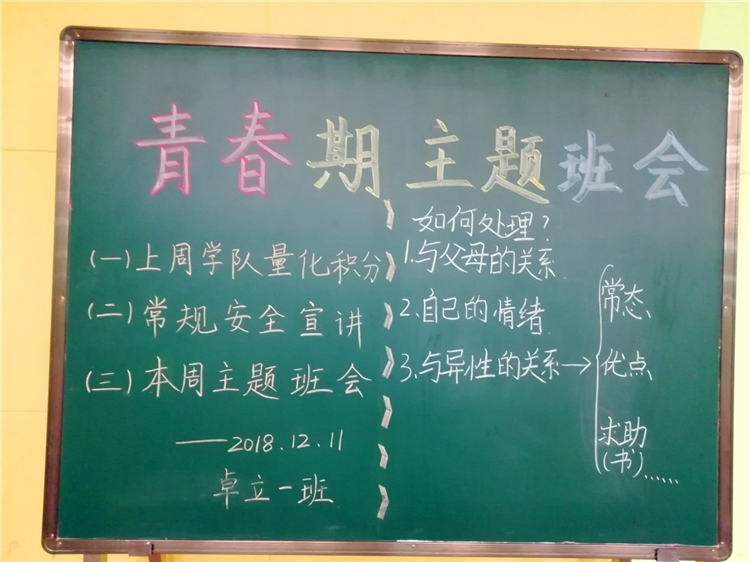 青春期主题班会
(一)上周学队量化积分
(二)常规安全宣讲
(三)本周主题班会
——2018.12.11
卓立一班
如何处理?
1.与父母的关系
2.自己的情绪
3.与异性的关系→
常态、
优点
求助
(书)……